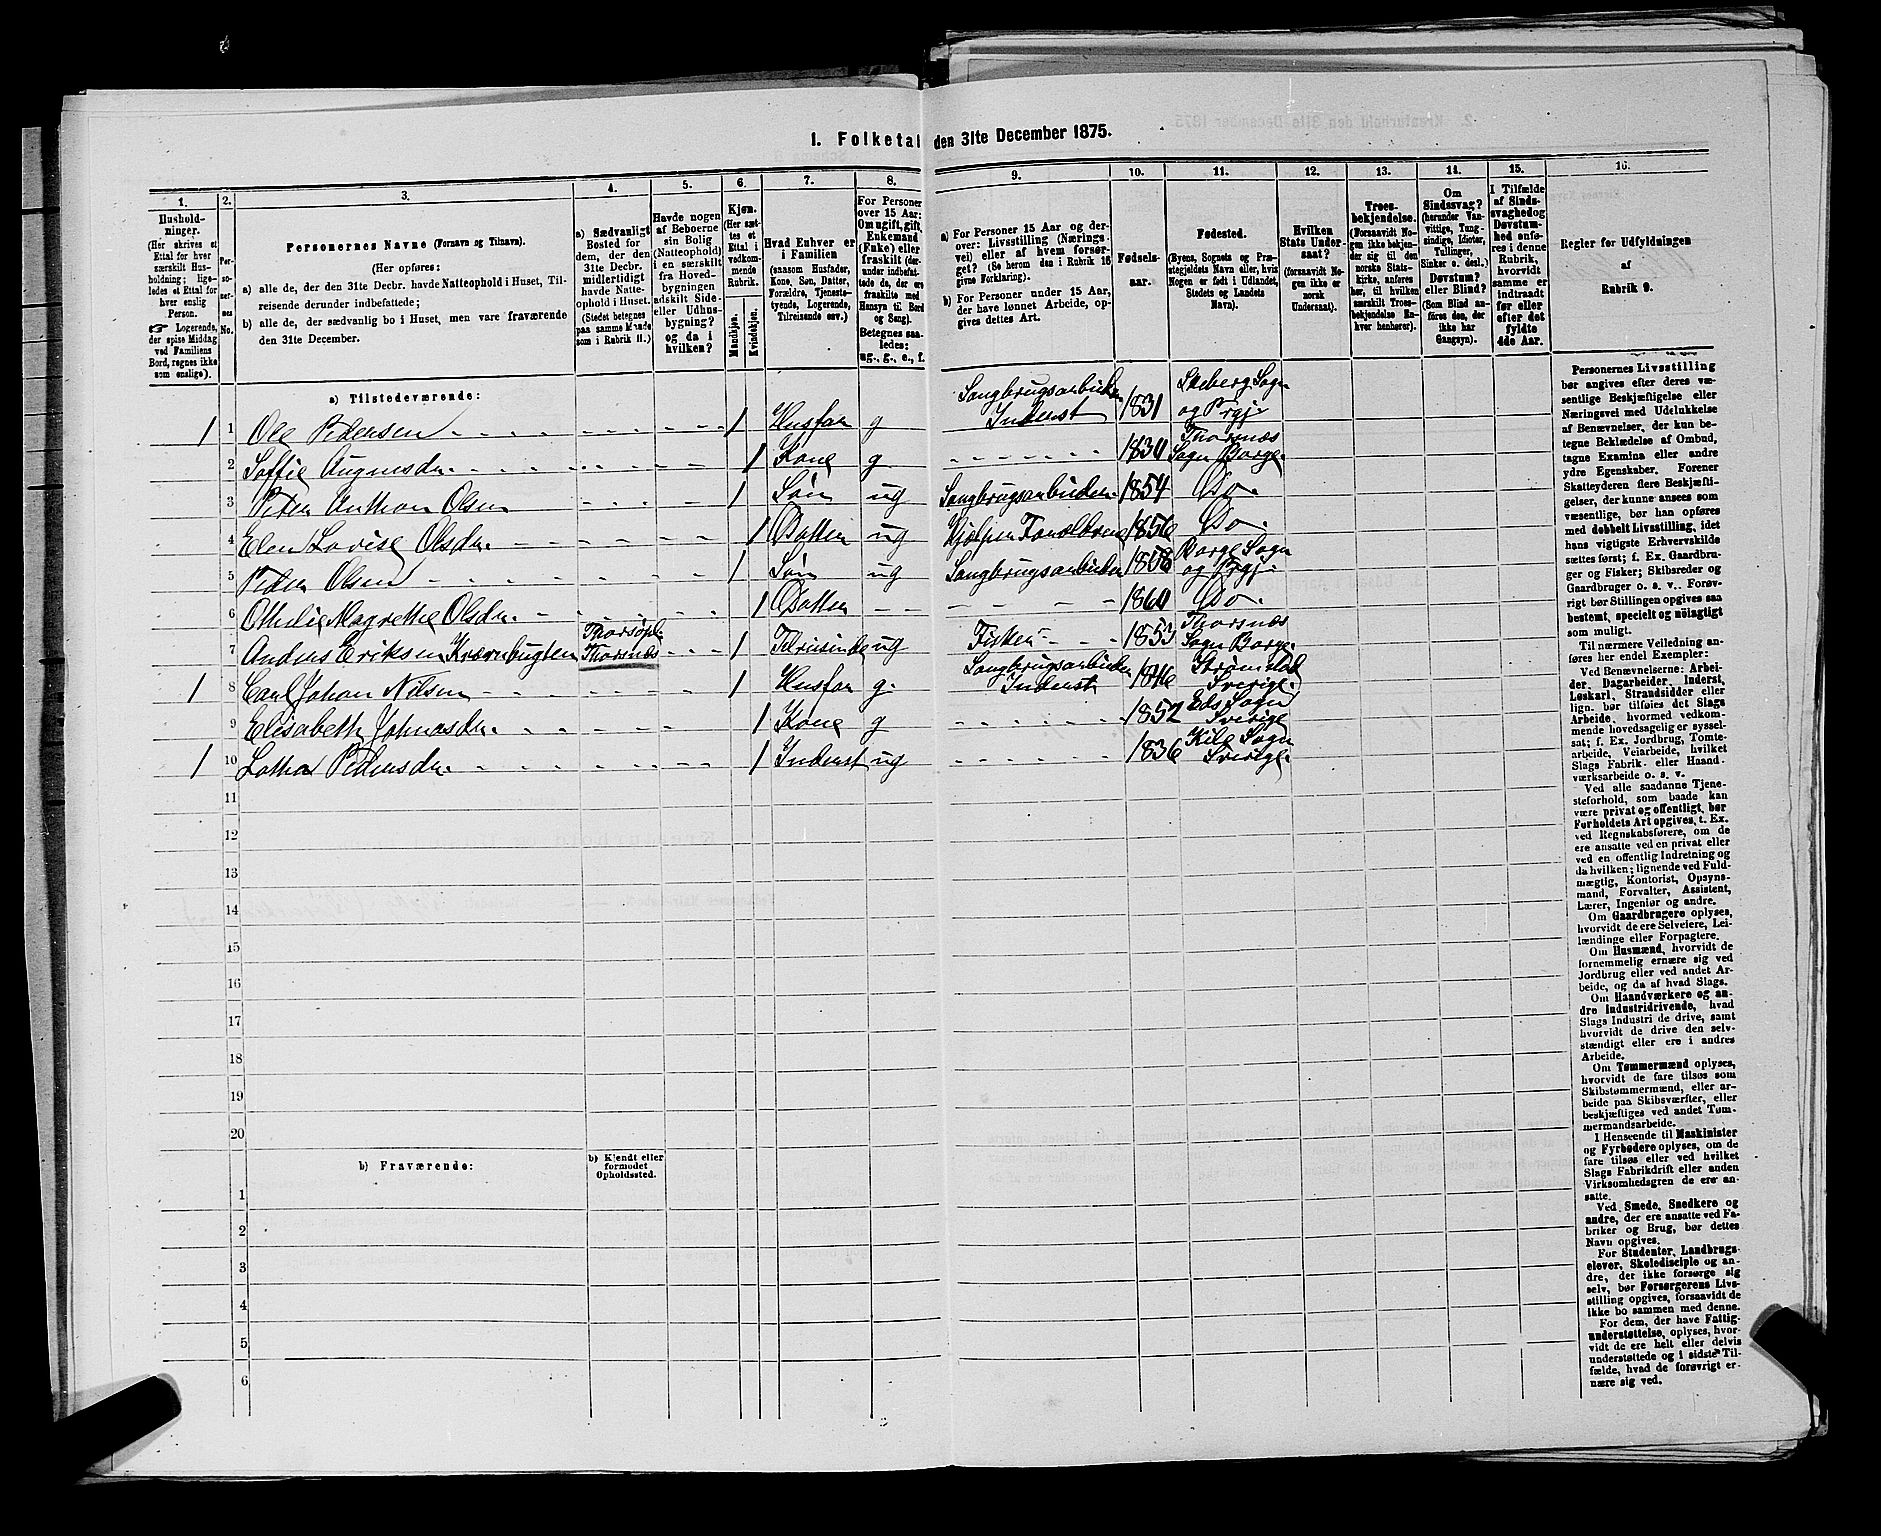 1. Folketal den 31te December 1875.
1.
2.
3.
4.
5.
6.
7.
8.
9.
10.
11.
12.
13.
14.
15.
16.
Hushold-
ninger.
(Her skrives et
Ettal for hver
særskilt Hus-
holdning; lige-
ledes et Ettal for
hver enslig
Person.
☞ Logerende,
der spise Middag
ved Familiens
Bord, regnes ikke
som enslige).
Per-
so-
ner-
nes
No.
Personernes Navne (Fornavn og Tilnavn).
(Her opføres:
a) alle de, der den 31te Decbr. havde Natteophold i Huset, Til-
reisende derunder indbefattede;
b) alle de, der sædvanlig bo i Huset, men vare fraværende
den 31te December.
a) Sædvanligt
Bosted for
dem, der den
31te Decbr.
midlertidigt
havde Natte-
ophold i Huset.
(Stedet betegnes
paa samme Maade
som i Rubrik 11.)
Havde nogen
af Beboerne
sin Bolig
(Natteophold)
i en særskilt
fra Hoved-
bygningen
adskilt Side-
eller Udhus-
bygning?
og da i
hvilken?
Kjøn.
(Her sæt-
tes et
Ettal i
vedkom-
mende
Rubrik.
Mandkjøn.
Kvindekjøn.
Hvad Enhver er
i Familien
(saasom Husfader,
Kone, Søn, Datter,
Forældre, Tjeneste-
tyende, Logerende,
Tilreisende osv.)
For Personer
over 15 Aar:
Om ugift, gift,
Enkemand
(Enke) eller
fraskilt (der-
under indbefat-
tede de, der ere
fraskilte med
Hensyn til Bord
og Seng).
Betegnes saa-
ledes:
ug., g., e., f.
a) For Personer 15 Aar og der-
over: Livsstilling (Nærings-
vei) eller af hvem forsør-
get? (Se herom den i Rubrik 16
givne Forklaring).
b) For Personer under 15 Aar,
der have lønnet Arbeide, op-
gives dettes Art.
Fødsels-
aar.
Fødested.
(Byens, Sognets og Præ-
stegjeldets Navn eller, hvis
Nogen er født i Udlandet,
Stedets og Landets
Navn).
Hvilken
Stats Under-
saat?
(forsaavidt No-
gen ikke er
norsk
Undersaat).
Troes-
bekjendelse.
(Forsaavidt No-
gen ikke bekjen-
der sig til den
norske Stats-
kirke, anføres
her, til hvilken
særskilt Troes-
bekjendelse En-
hver henhører).
Om
Sindssvag?
(herunder Van-
vittige, Tung-
sindige, Idioter,
Tullinger,
Sinker o. desl.)
Døvstum?
eller Blind?
(Som Blind an-
føres den, der
ikke har
Gangsyn).
I Tilfælde
af Sinds-
svaghed og
Døvstum-
hed anfø-
res i denne
Rubrik,
hvorvidt
samme er
indtraadt
før eller
efter det
fyldte
4de Aar.
Regler for Udfyldningen
af
Rubrik 9.
a) Tilstedeværende:
1 1 Ole Pedersen 1 Husfar g Saugbrugsarbeider Inderst 1831 Sogn og Prgj.
2 Soffie Augunsdr. 1 Kone g Thorsnæs Sogn Borge.
3 Peter Anthon Olsen 1 Søn ug Saugbrugsarbeider 1854 Do.
4 Elen Lovise Olsdr. 1 Datter ug 1856 Do.
5 Peder Olsen 1 Søn ug Saugbrugsarbeider 1858 Borge Sogn og Prgj.
6 Othilie Magrethe Olsdr. 1 Datter Do.
7 Anders Eriksen Thorsnæs 1 Tilreisende ug Fisker 1853 Thorsnæs Sogn Borge.
1 8 Carl Johan Nilsen 1 Husfar g. Saugbrugsarbeider Inderst 1846 Strømstad Sverige.
9 Elisabeth Johnasdr. 1 Kone g 1852 Eds Sogn Sverige
1 10 Lotha Pedersdr. 1 Inderst ug 1836 Kile Sogn Sverige.
11
12
13
14
15
16
17
18
19
20
b) Fraværende:
b) Kjendt eller
formodet
Opholdssted.
1
2
3
4
5
6
Personernes Livsstilling
bør angives efter deres væ-
sentlige Beskjæftigelse eller
Næringsvei med Udelukkelse
af Benævnelser, der kun be-
tegne Beklædelse af Ombud,
tagne Examina eller andre
ydre Egenskaber. Forener
Skatteyderen flere Beskjæfti-
gelser, der kunne ansees som
væsentlige, bør han opføres
med dobbelt Livsstilling, idet
hans vigtigste Erhvervskilde
sættes først; f. Ex. Gaardbru-
ger og Fisker; Skibsreder og
Gaardbruger o. s. v. Forøv-
rigt bør Stillingen opgives saa
bestemt, specielt og nøiagtigt
som muligt.
Til nærmere Veiledning an-
føres her endel Exempler:
Ved Benævnelserne: Arbei-
der, Dagarbeider, Inderst,
Løskarl, Strandsidder eller
lign. bør tilføies det Slags
Arbeide, hvormed vedkom-
mende hovedsagelig er syssel-
sat; f. Ex. Jordbrug, Tomte-
arbeide, Veiarbeide, hvilket
Slags Fabrik- eller Haand-
værksarbeide o. s. v.
Ved alle saadanne Tjene-
steforhold, som baade kan
være privat og offentligt, bør
Forholdets Art opgives, t. Ex.
ved Regnskabsførere, om de
ere ansatte ved en privat eller
ved en offentlig Indretning og
da hvilken; lignende ved Fuld-
mægtig, Kontorist, Opsyns-
mand, Forvalter, Assistent,
Lærer, Ingeniør og andre.
Om Gaardbrugere oplyses,
hvorvidt de ere Selveiere, Lei-
lændinge eller Forpagtere.
Om Husmænd, hvorvidt de
fornemmelig ernære sig ved
Jordbrug eller ved andet Ar-
beide, og da af hvad Slags.
Om Haandværkere og an-
dre Industridrivende, hvad
Slags Industri de drive, samt
hvorvidt de drive den selv-
stændigt eller ere i andres
Arbeide.
Om Tømmermænd oplyses,
hvorvidt de fare tilsøs som
Skibstømmermænd, eller ar-
beide paa Skibsværfter, eller
beskjæftiges ved andet Tøm-
mermandsarbeide.
I Henseende til Maskinister
og Fyrbødere oplyses, om de
fare tilsøs eller ved hvilket
Slags Fabrikdrift eller anden
Virksomhedsgren de ere an-
satte.
Ved Smede, Snedkere og
andre, der ere ansatte ved Fa-
briker og Brug, bør dettes
Navn opgives.
For Studenter, Landbrugs-
elever, Skoledisciple og an-
dre, der ikke forsørge sig
selv, bør Forsørgerens Livs-
stilling opgives, forsaavidt de
ikke bo sammen med denne.
For dem, der have Fattig-
understøttelse, oplyses, hvor-
vidt de ere helt eller delvis
understøttede og i sidste Til-
fælde, hvad de forøvrigt er-
nære sig ved.